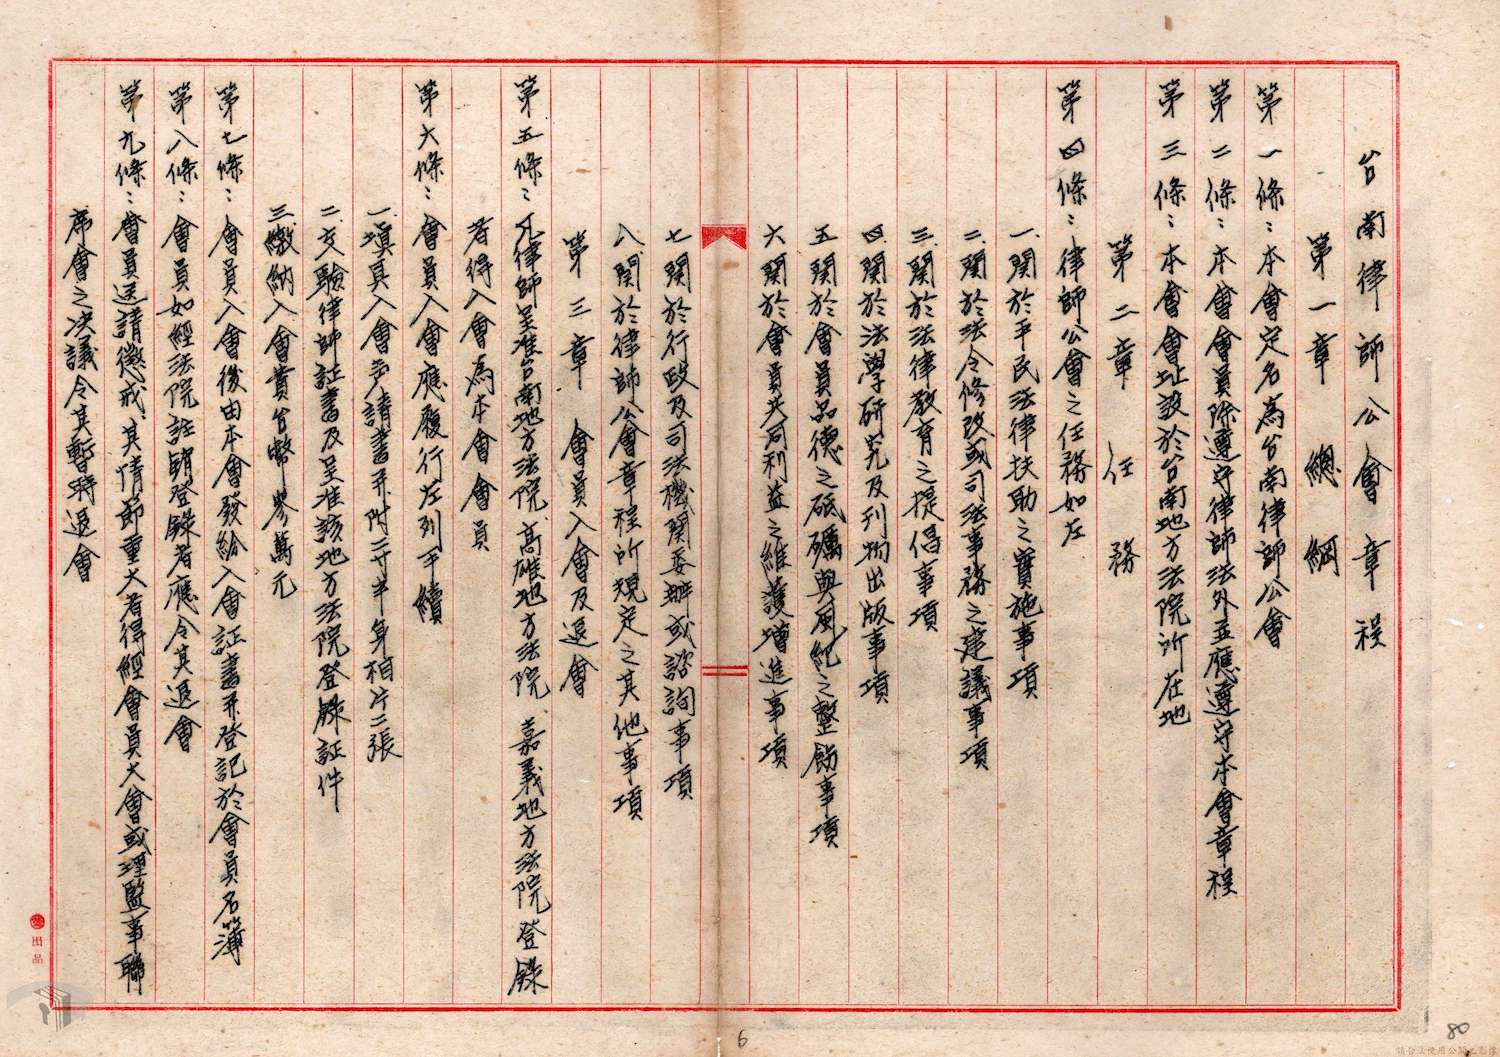 台南律師公會章程
第一章 總綱
第一條：本會定名為台南律師公會
第二條：本會會員除遵守律師法外並應遵守本會章程
第三條：本會會址設於台南地方法院所在地
第二章 任務
第四條：律師公會之任務如左
一、關於平民法律扶助之實施事項
二、關於法令修改或司法事務之建議事項
三、關於法律教育之提倡事項
四、關於法學研究及刊物出版事項
五、關於會員品德之砥礪與風紀之整飭事項
六、關於會員共同利益之維護增進事項
七、關於行政及司法機關委辦或諮詢事項
八、關於律師公會章程所規定之其他事項
第三章 會員入會及退會
第五條：凡律師呈准台南地方法院、高雄地方法院、嘉義地方法院登錄
者得入會為本會會員
第六條：會員入會應履行左列手續
一、填具入會声請書并附二寸半身相片二張
二、交驗律師証書及呈准該地方法院登錄証件
三、繳納入會費台幣參萬元
第七條：會員入會後由本會發給入會証書并登記於會員名簿
第八條：會員如經法院註銷登錄者應令其退會
第九條：會員送請懲戒、其情節重大者得經會員大會或理監事聯
席會之决議令其暫時退會
出品
6
80